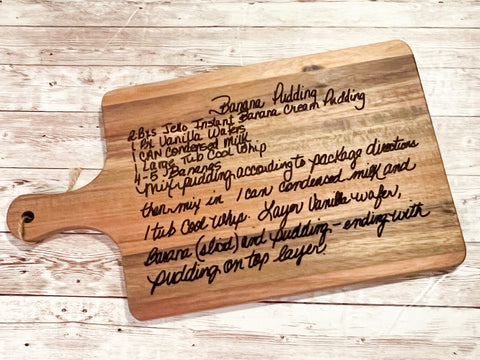 Banana Pudding
2 Bxs Jello Instant Banana Cream Pudding
1 Bx Vanilla Wafers
1 CAN Condensed milk
1 Large Tub Cool Whip
4-5 Bananas
Mix pudding according to package directions
then mix in 1 can condensed milk and
1 tub Cool Whip. Layer Vanilla wafer,
banana (sliced) and pudding - ending with
pudding on top layer.